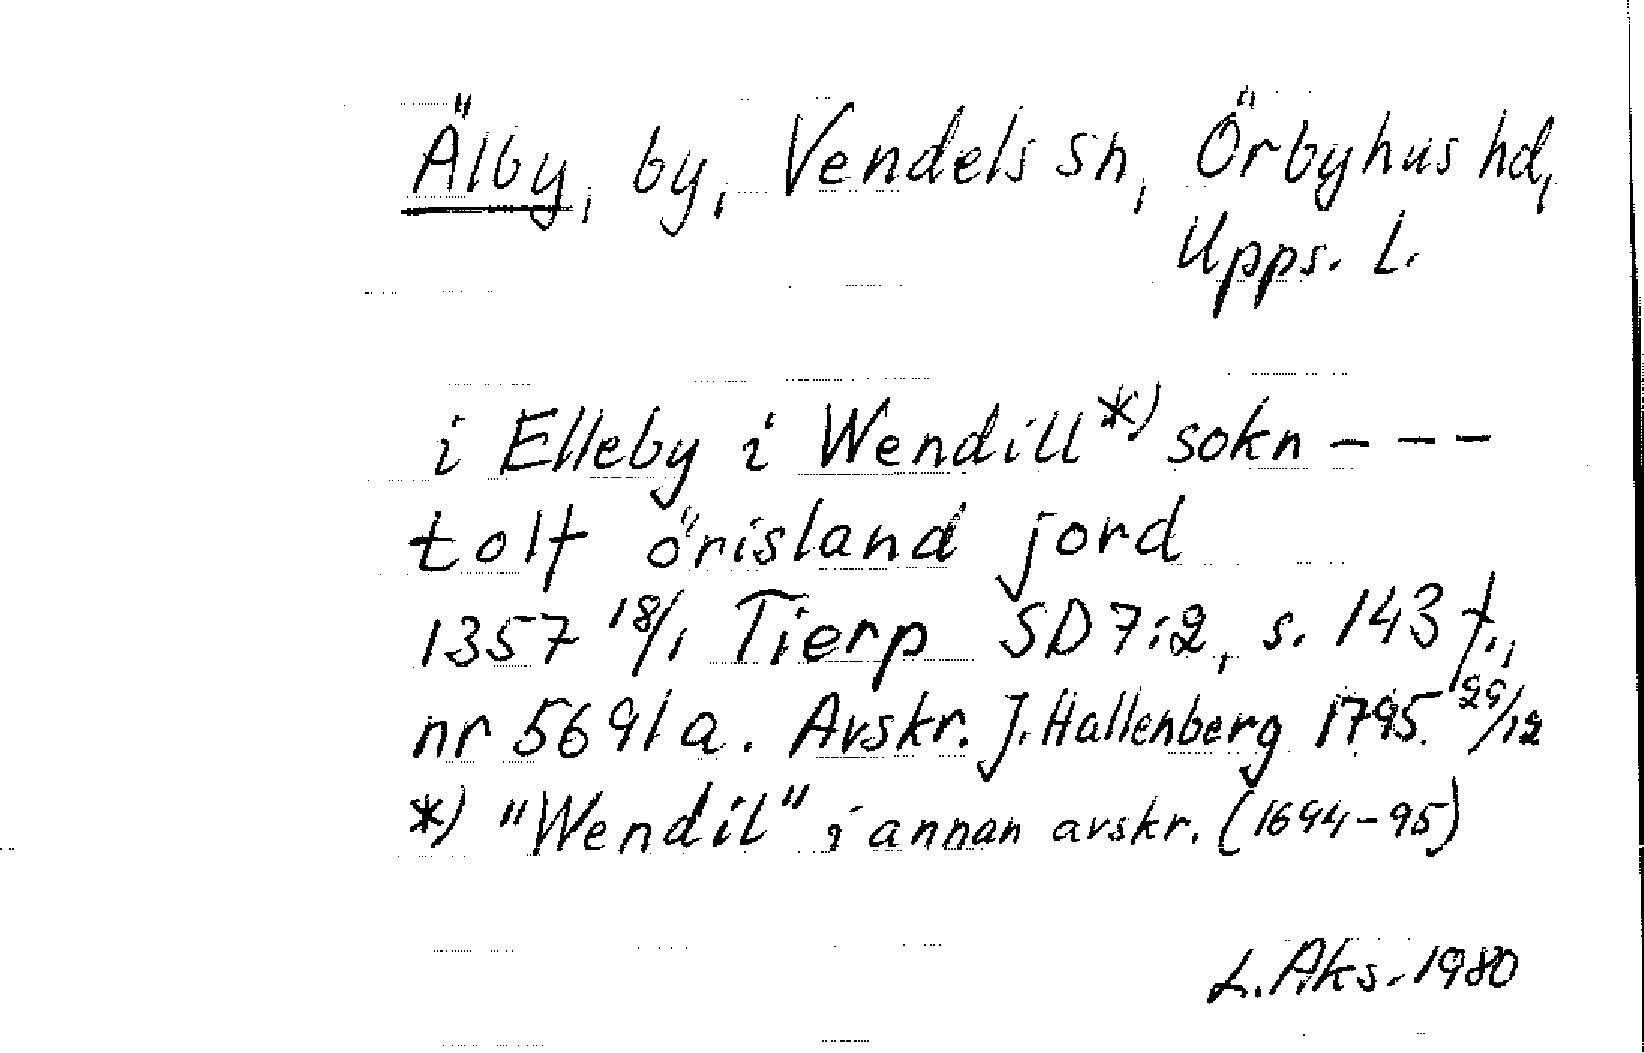 Älby, by, Vendels sn, Örbyhus hd,
Upps. L.
i Elleby i Wendill*) sokn - - -
tolf örisland jord
1357 18/1 Tierp SD 7:2, s. 143 f.,
nr 5691a. Avskr. J. Hallenberg 1795 29/12
*) "Wendil" i annan avskr. (1694-95)
L. Aks. 1980